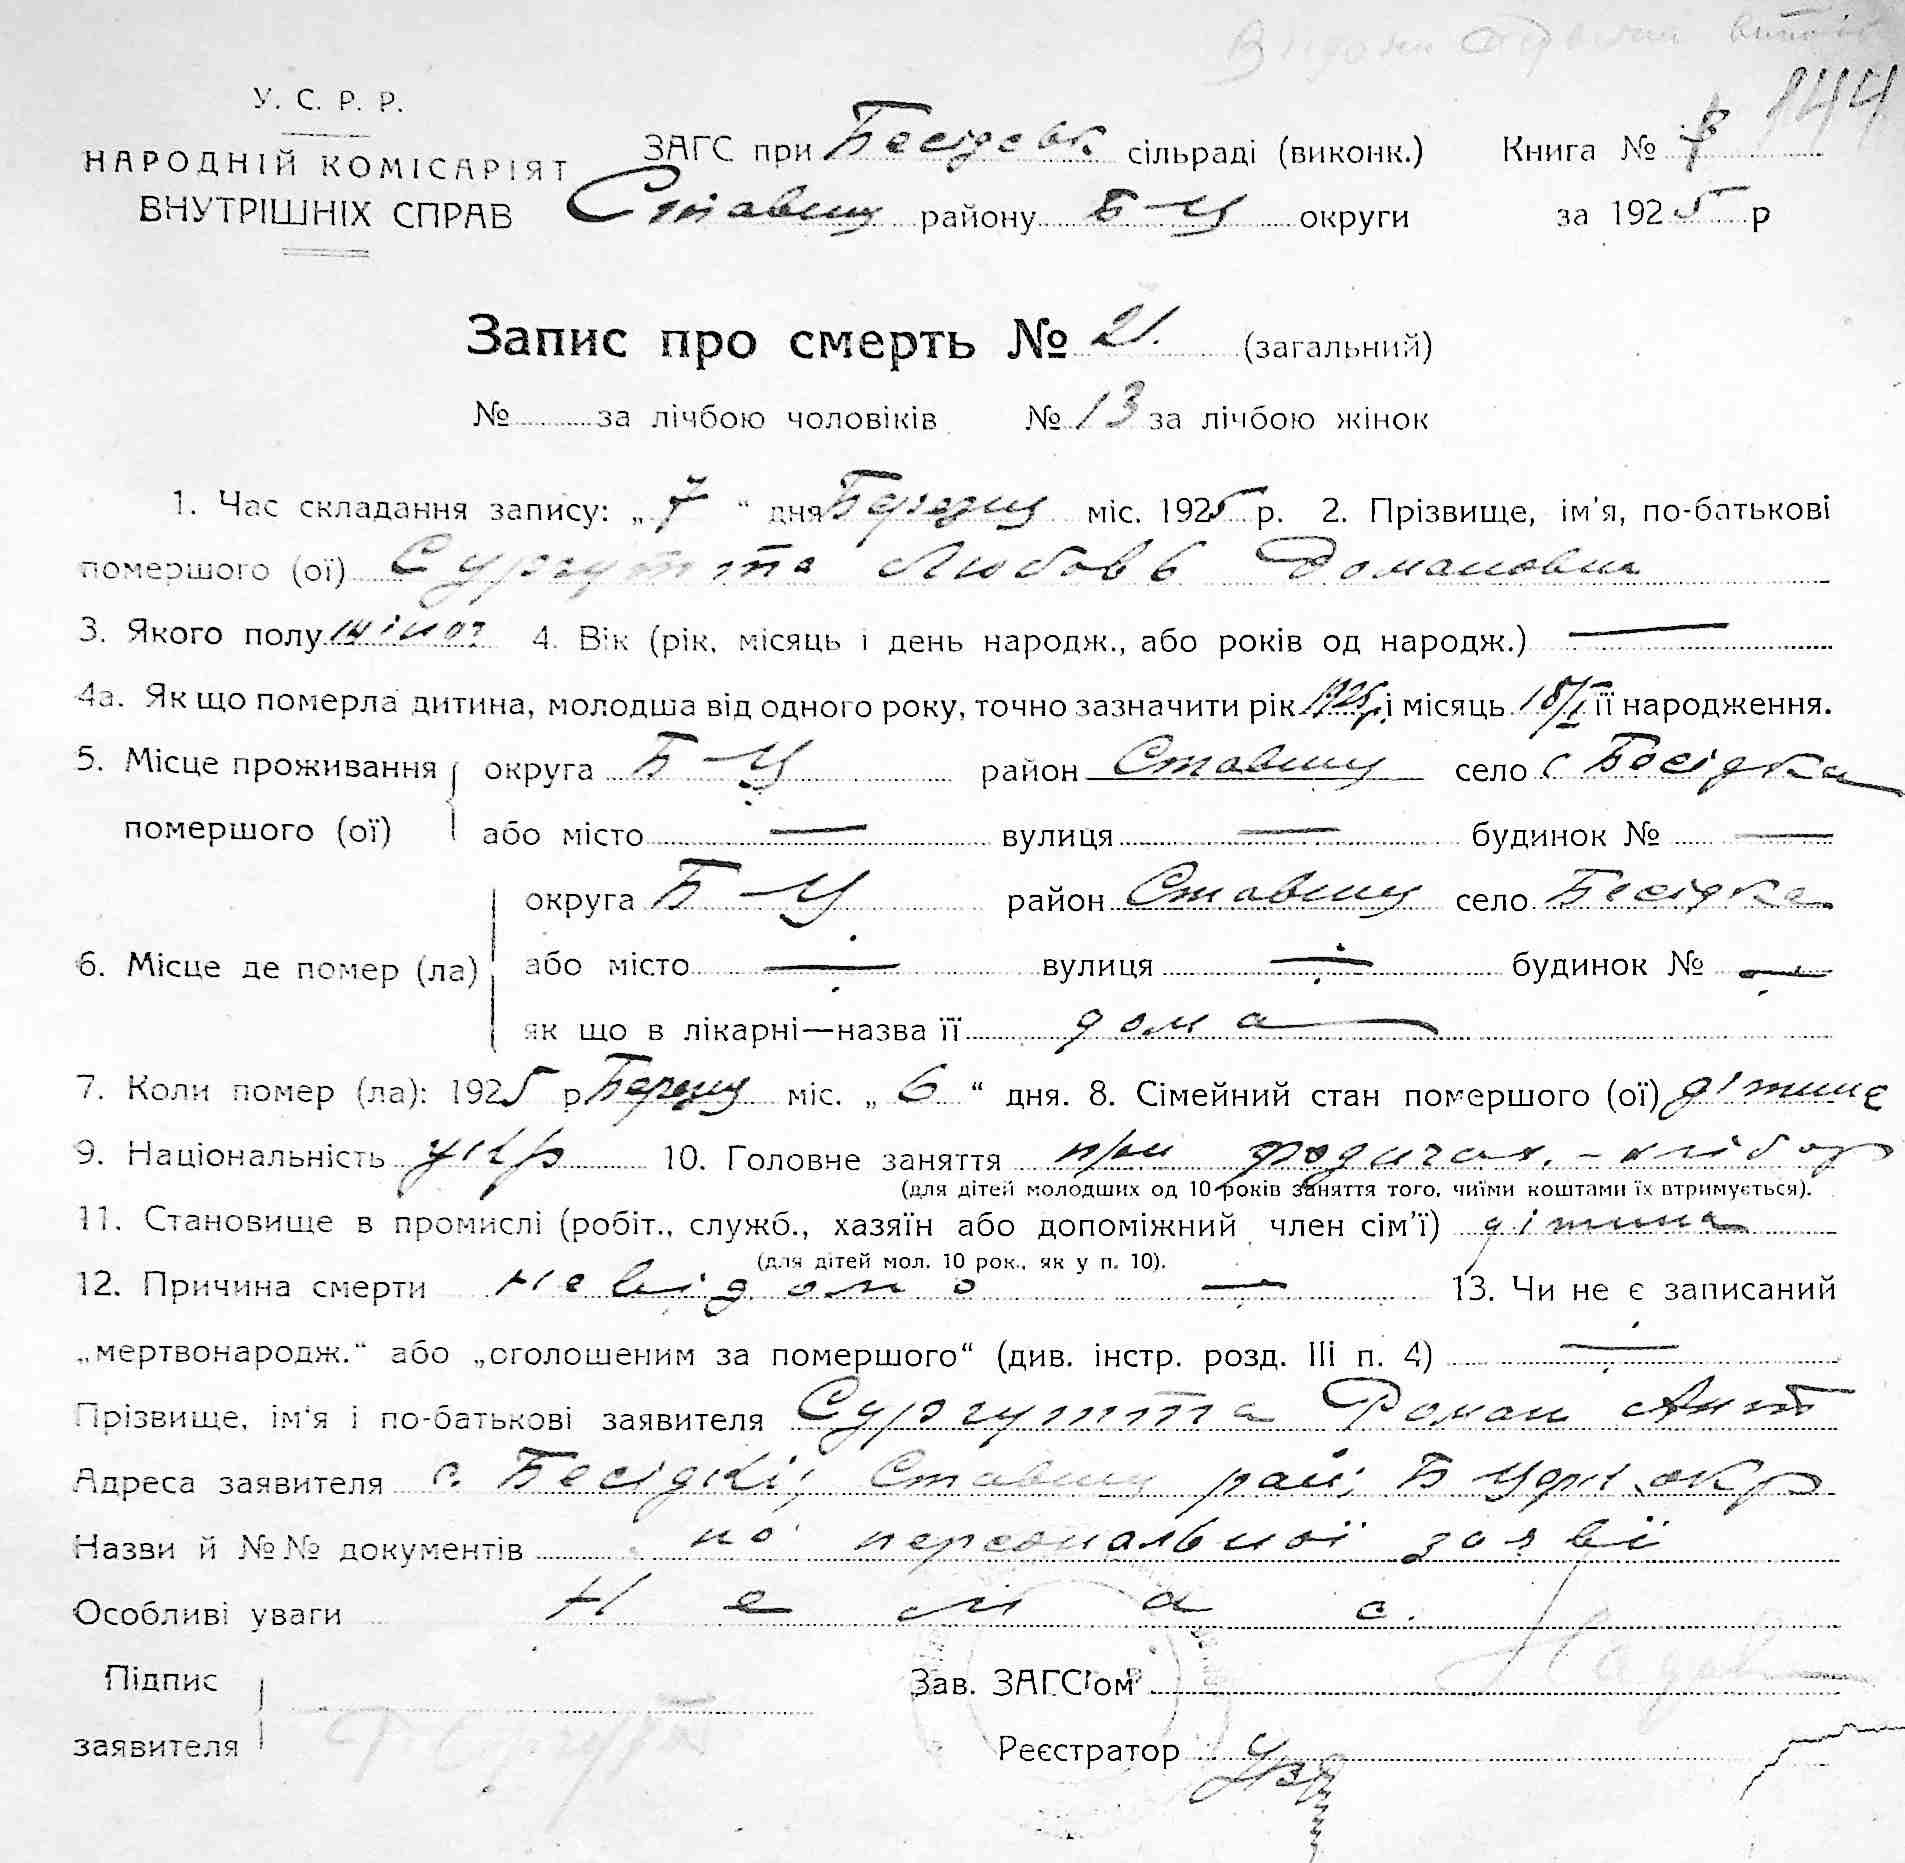 144
У. С. Р. Р.
НАРОДНІЙ КОМІСАРІЯТ
ВНУТРІШНІХ СПРАВ
ЗАГС при Бесідськ сільраді (виконк.) Книга №
Ставищ району Б-Ц округи за 1925 р
Запис про смерть № 21. (загальний)
№ за лічбою чоловіків № 13 за лічбою жінок
1. Час складання запису: „ 7 “ дня Березня міс. 1925 р. 2. Прізвище, ім'я, по-батькові
помершого (ої) Сургутта Любовь Романовна
3. Якого полу жіноч 4. Вік (рік, місяць і день народж., або років од народж.) —
4а. Як що померла дитина, молодша від одного року, точно зазначити рік 1925 р. і місяць 18/I її народження.
5. Місце проживання округа Б-Ц район Ставищ село с Бесідка
помершого (ої) або місто — вулиця — будинок № —
округа Б-Ц район Ставищ село Бесідка
6. Місце де помер (ла) або місто — вулиця — будинок № —
як що в лікарні—назва її дома
7. Коли помер (ла): 1925 р Березня міс. „ 6 “ дня. 8. Сімейний стан помершого (ої) дітина
9. Національність укр 10. Головне заняття при родичах. - хлібор
(для дітей молодших од 10 років заняття того, чиїми коштами їх втримується).
11. Становище в промислі (робіт., служб., хазяїн або допоміжний член сім'ї) дітина
(для дітей мол. 10 рок., як у п. 10).
12. Причина смерти невідомо — 13. Чи не є записаний
„мертвонародж.“ або „оголошеним за помершого“ (див. інстр. розд. III п. 4) —
Прізвище, ім'я і по-батькові заявителя Сургутта Роман Ант
Адреса заявителя с. Бесідкі, Ставищ рай; Б Церк. окр
Назви й №№ документів по персональної заяві
Особливі уваги Немає.
Підпис
заявителя
Зав. ЗАГС'ом
Реєстратор